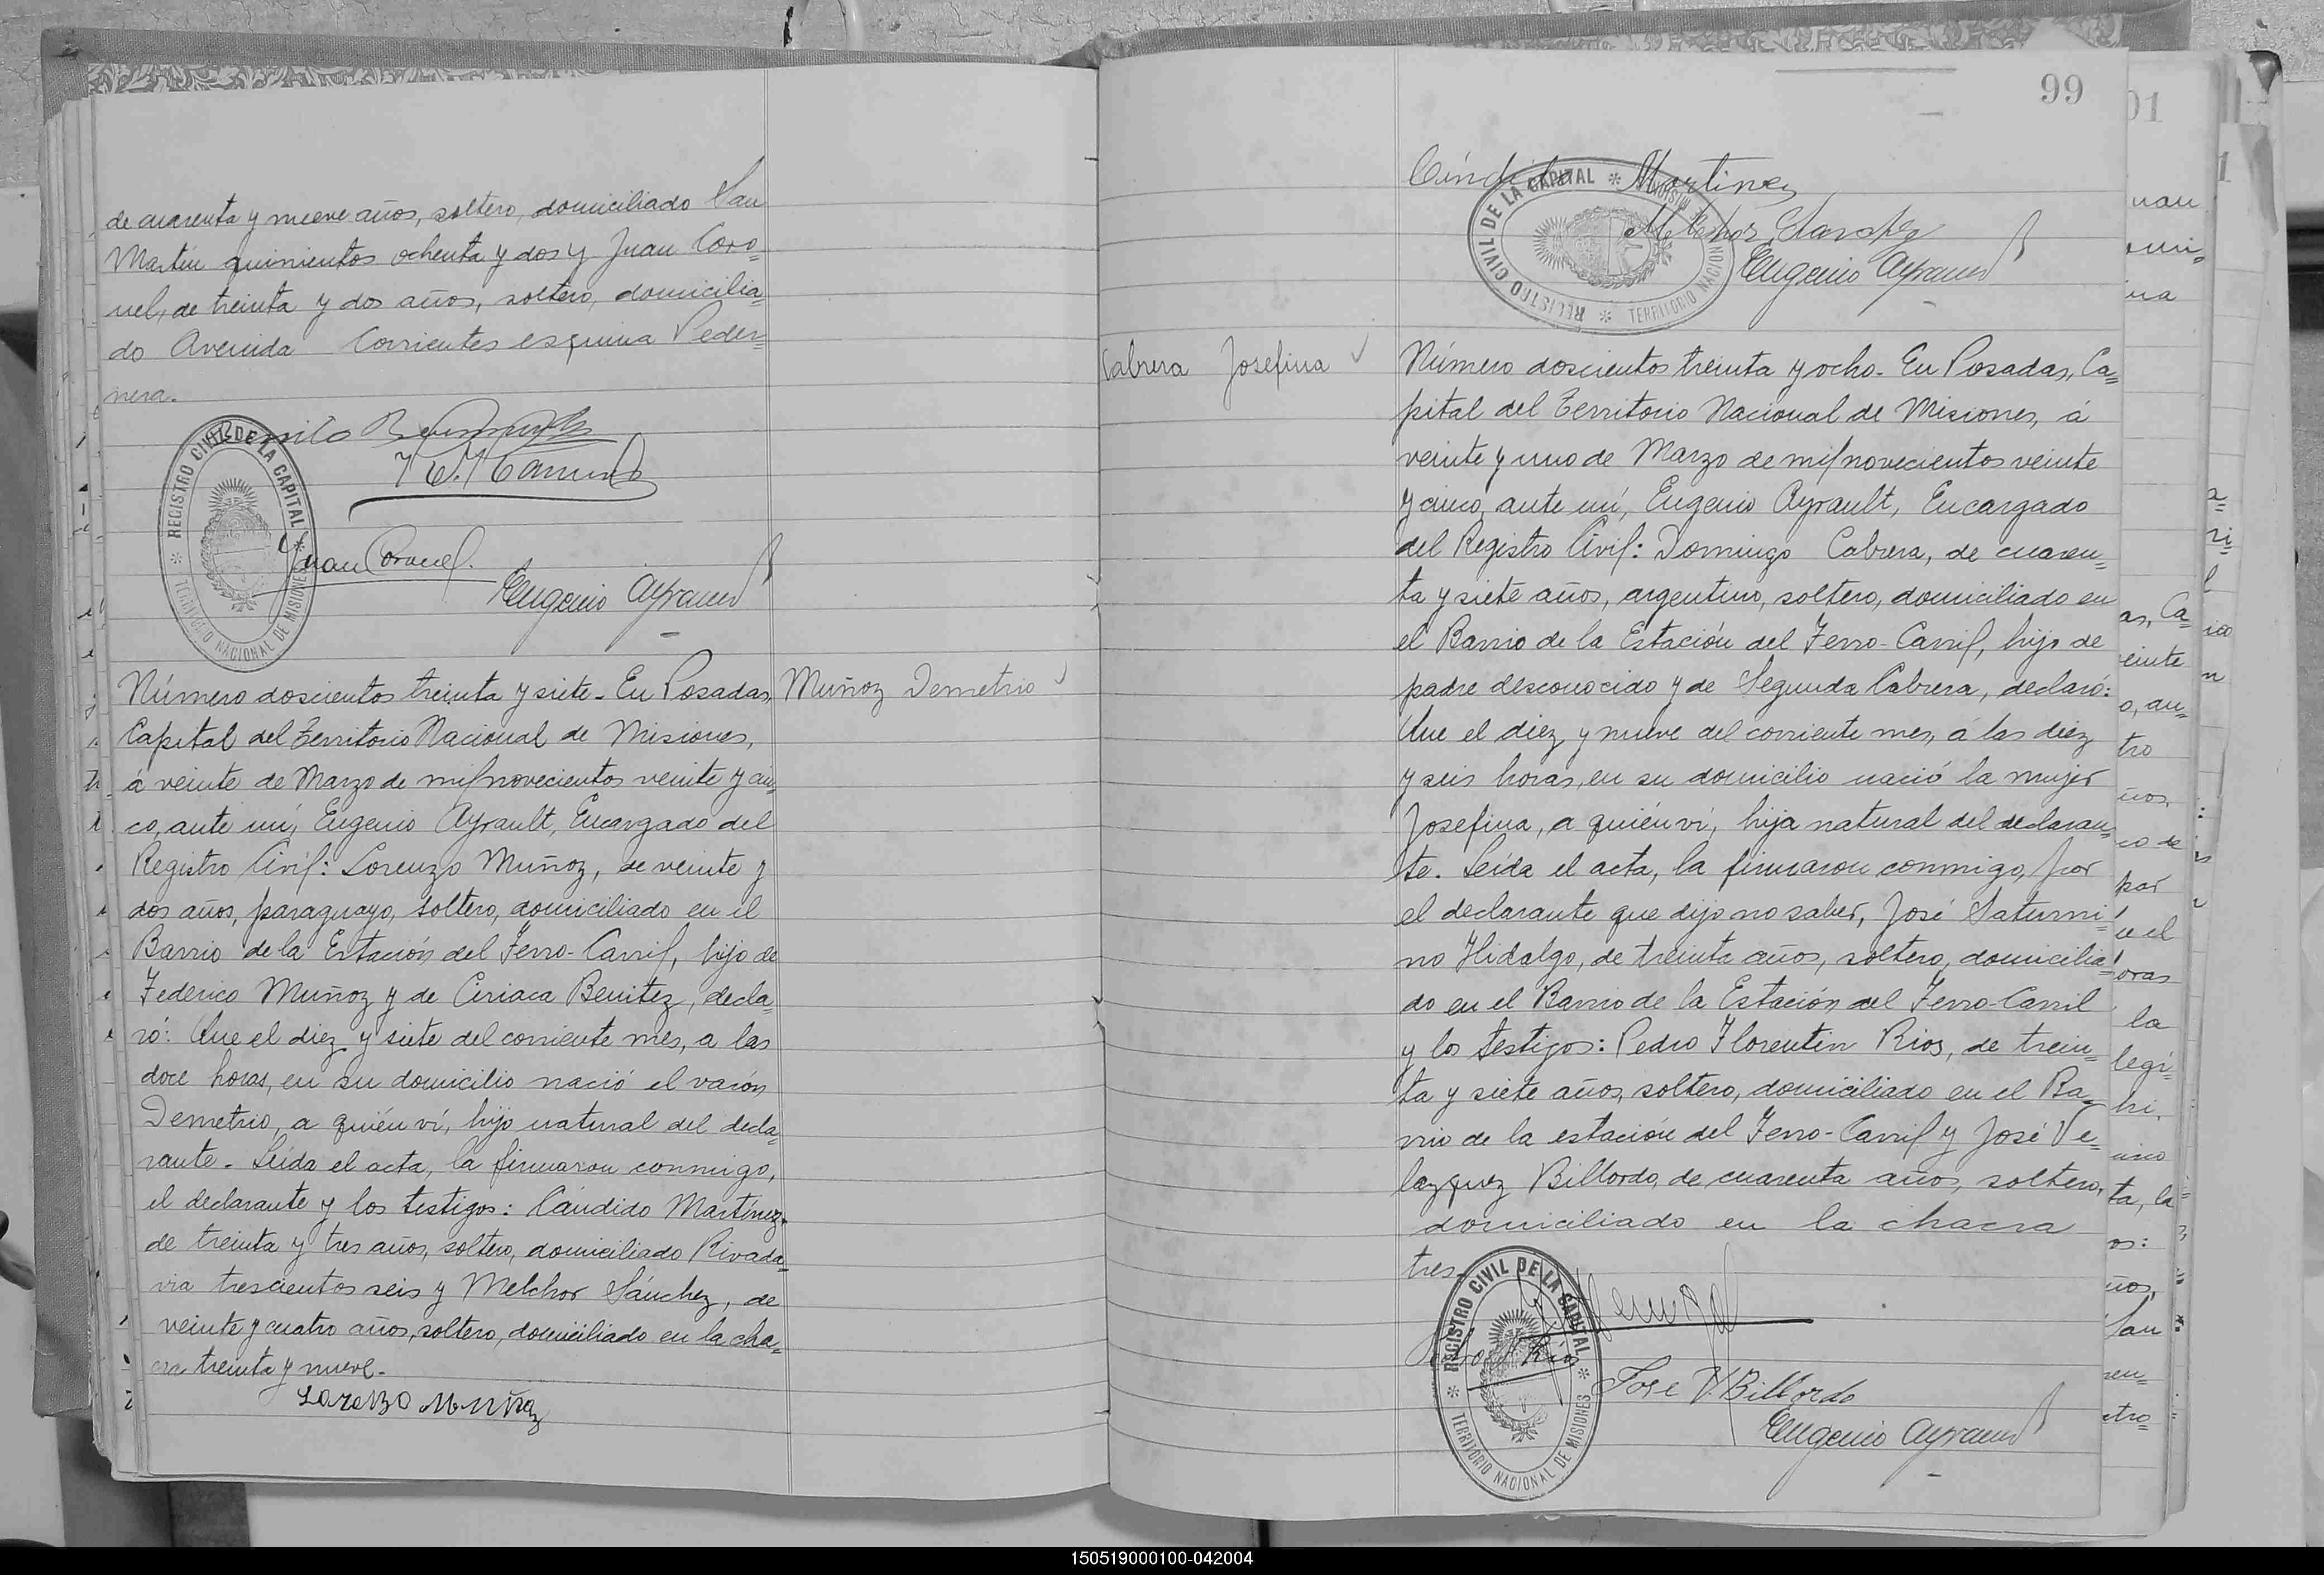 de cuarenta y nueve años, soltero, domiciliado San
Martín quinientos ochenta y dos y Juan Coro=
nel, de treinta y dos años, soltero, domicilia=
do Avenida Corrientes esquina Peder=
nera.
REGISTRO CIVIL DE LA CAPITAL * TERRITORIO NACIONAL DE MISIONES *
Juan Coronel.
Eugenio Ayrault
Número doscientos treinta y siete. En Posadas,
Muñoz Demetrio
Capital del Territorio Nacional de Misiones,
á veinte de Marzo de mil novecientos veinte y cin=
co, ante mí, Eugenio Ayrault, Encargado del
Registro Civil: Lorenzo Muñoz, de veinte y
dos años, paraguayo, soltero, domiciliado en el
Barrio de la Estación del Ferro-Carril, hijo de
Federico Muñoz y de Ciriaca Benitez, decla=
ró: Que el diez y siete del corriente mes, a las
doce horas, en su domicilio nació el varón
Demetrio, a quién ví, hijo natural del decla=
rante. Leída el acta, la firmaron conmigo,
el declarante y los testigos: Cándido Martínez,
de treinta y tres años, soltero, domiciliado Rivada=
via trescientos seis y Melchor Sánchez, de
veinte y cuatro años, soltero, domiciliado en la cha=
cra treinta y nueve.
Lorenzo Muñoz
99
Cándido Martinez
REGISTRO CIVIL DE LA CAPITAL * TERRITORIO NACIONAL DE MISIONES *
Melchor Sanchez
Eugenio Ayrault
Cabrera Josefina
Número doscientos treinta y ocho. En Posadas, Ca=
pital del Territorio Nacional de Misiones, á
veinte y uno de Marzo de mil novecientos veinte
y cinco, ante mí, Eugenio Ayrault, Encargado
del Registro Civil: Domingo Cabrera, de cuaren=
ta y siete años, argentino, soltero, domiciliado en
el Barrio de la Estación del Ferro-Carril, hijo de
padre desconocido y de Segunda Cabrera, declaró:
Que el diez y nueve del corriente mes, á las diez
y seis horas, en su domicilio nació la mujer
Josefina, a quién ví, hija natural del declaran=
te. Leída el acta, la firmaron conmigo, por
el declarante que dijo no saber, José Saturni=
no Hidalgo, de treinta años, soltero, domicilia=
do en el Barrio de la Estación del Ferro-Carril
y los testigos: Pedro Florentín Rios, de trein=
ta y siete años, soltero, domiciliado en el Ba=
rrio de la estación del Ferro-Carril y José Ve=
lazquez Billordo, de cuarenta años, soltero,
domiciliado en la chacra
tres.
REGISTRO CIVIL DE LA CAPITAL * TERRITORIO NACIONAL DE MISIONES *
Rios
Jose V. Billordo
Eugenio Ayrault
150519000100-042004